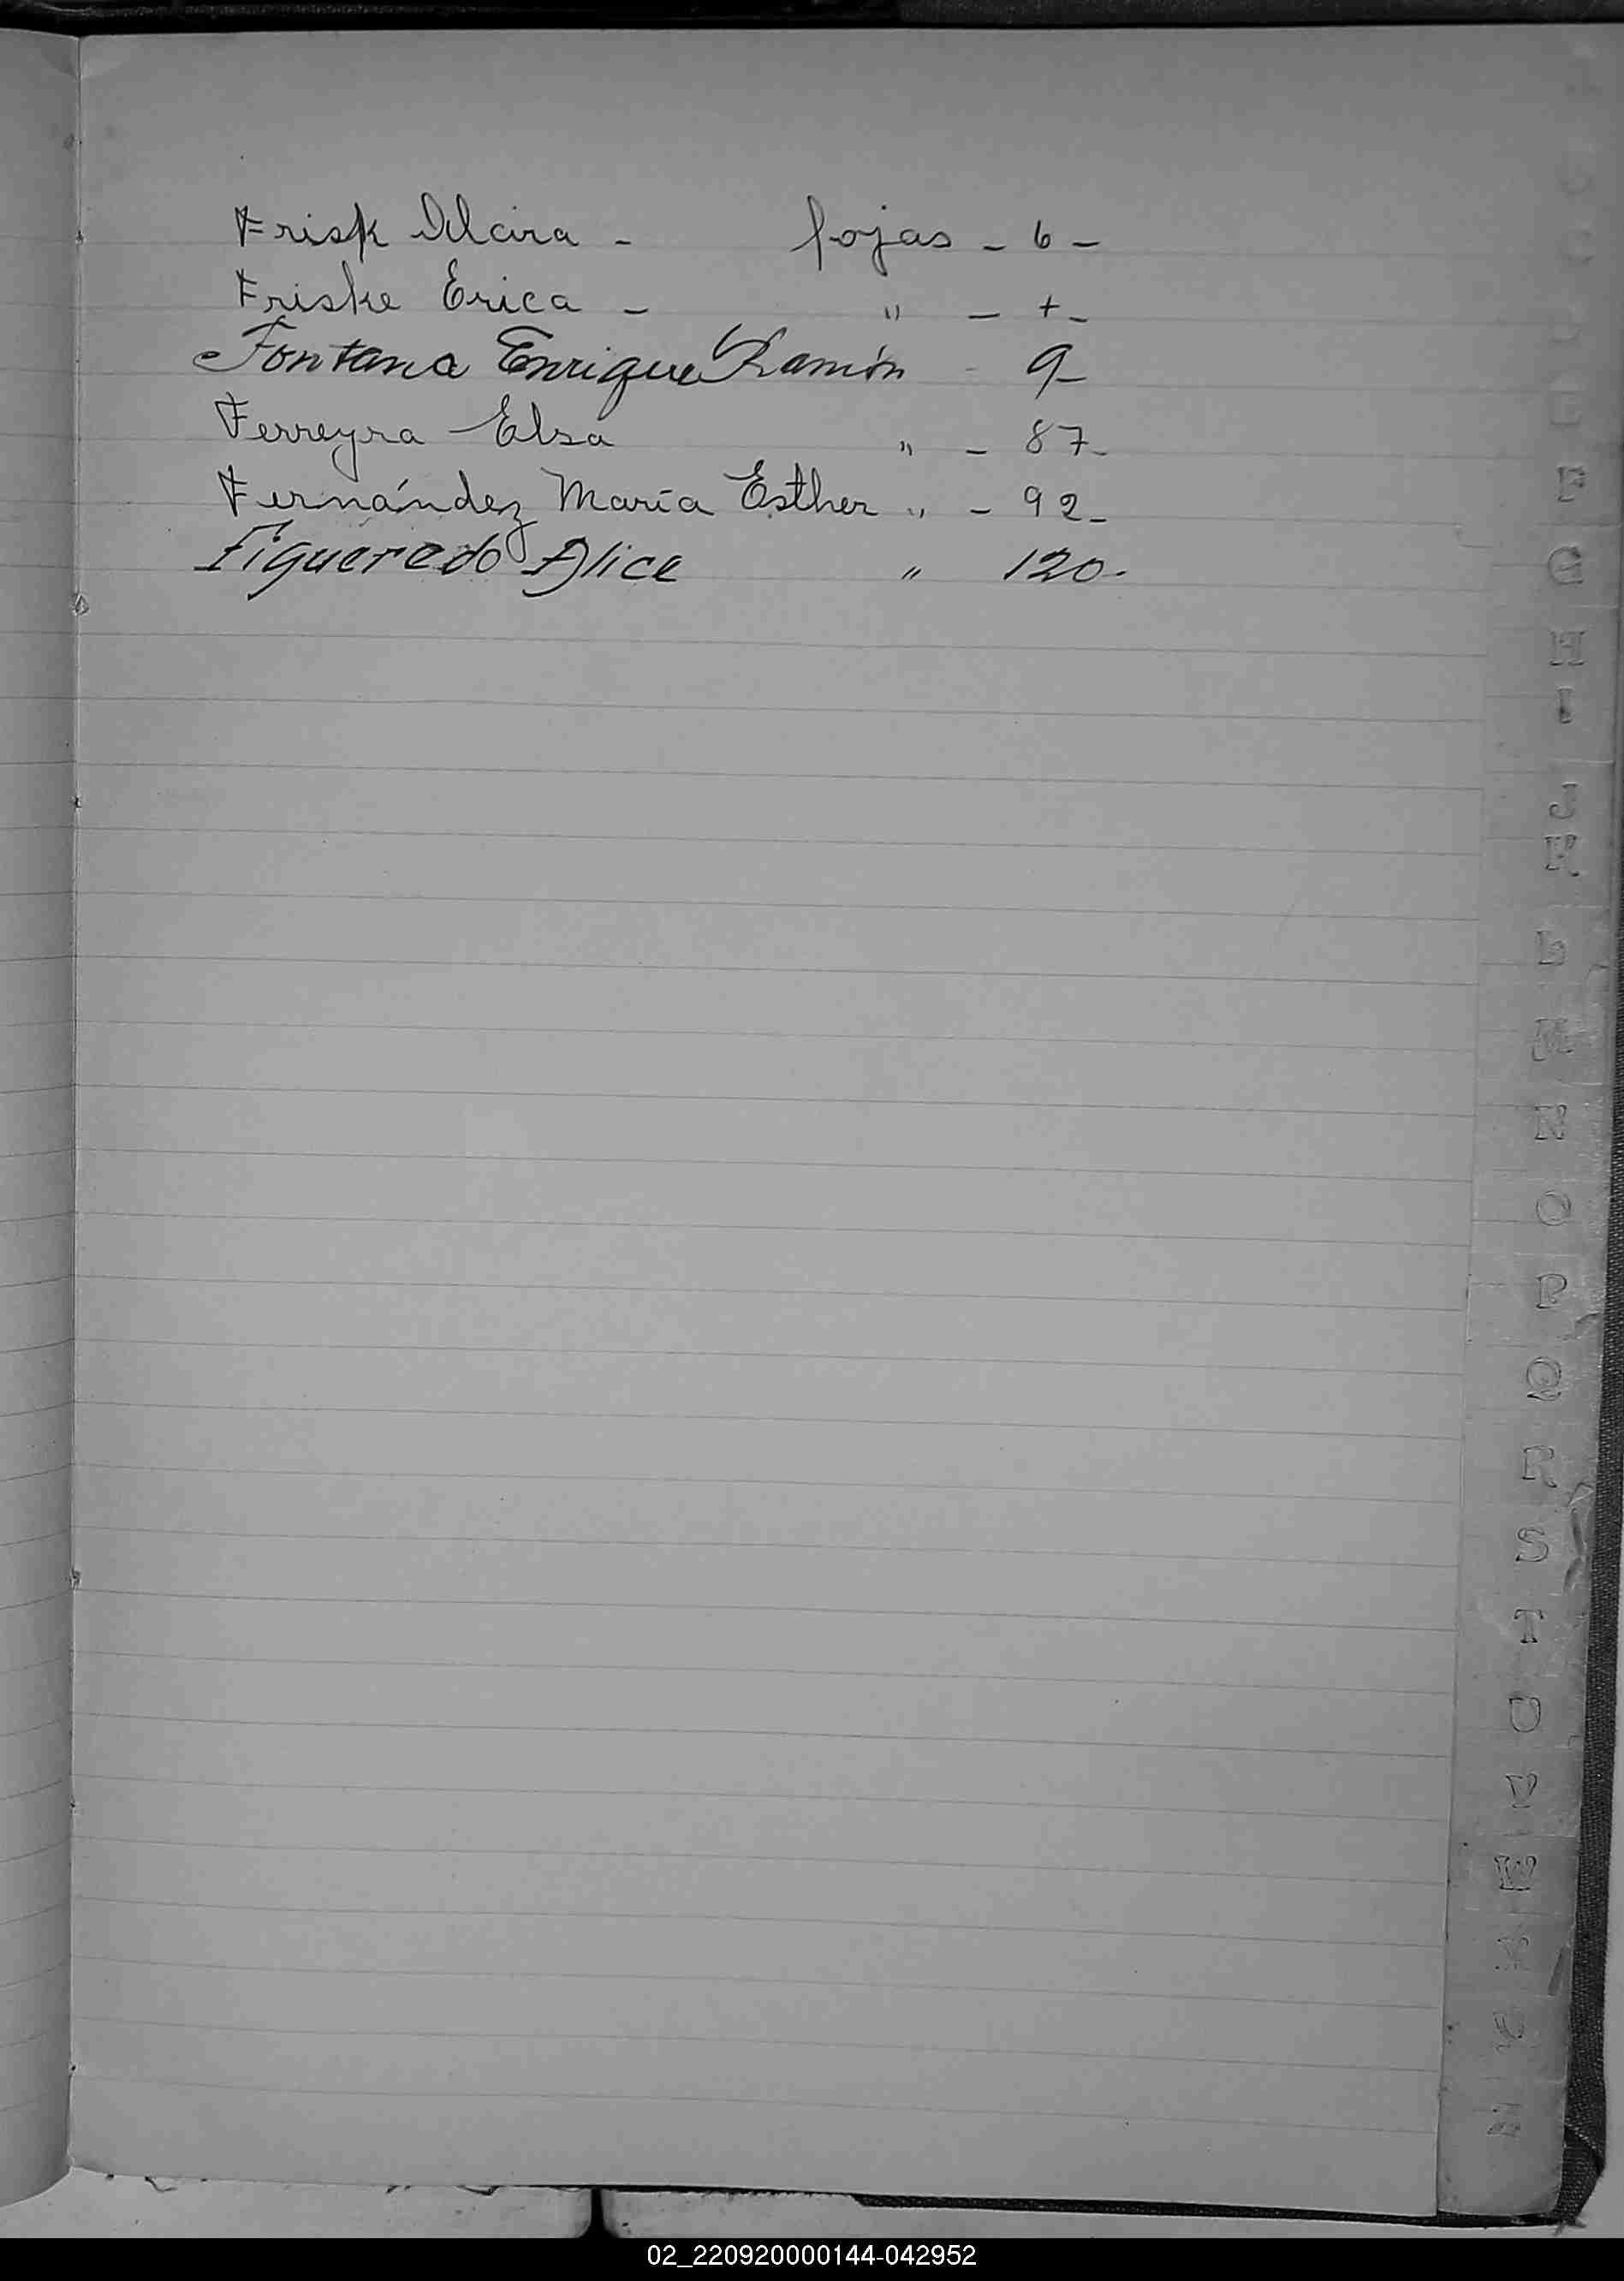 Frisk Alcira - fojas - 6 -
Friske Erica - " - + -
Fontana Enrique Ramón - 9 -
Ferreyra Elsa " - 87 -
Fernández María Esther " - 92 -
Figueredo Alice " 120 -
F
G
H
I
J
K
L
M
N
O
P
Q
R
S
T
U
V
W
X
Y
Z
02_220920000144-042952